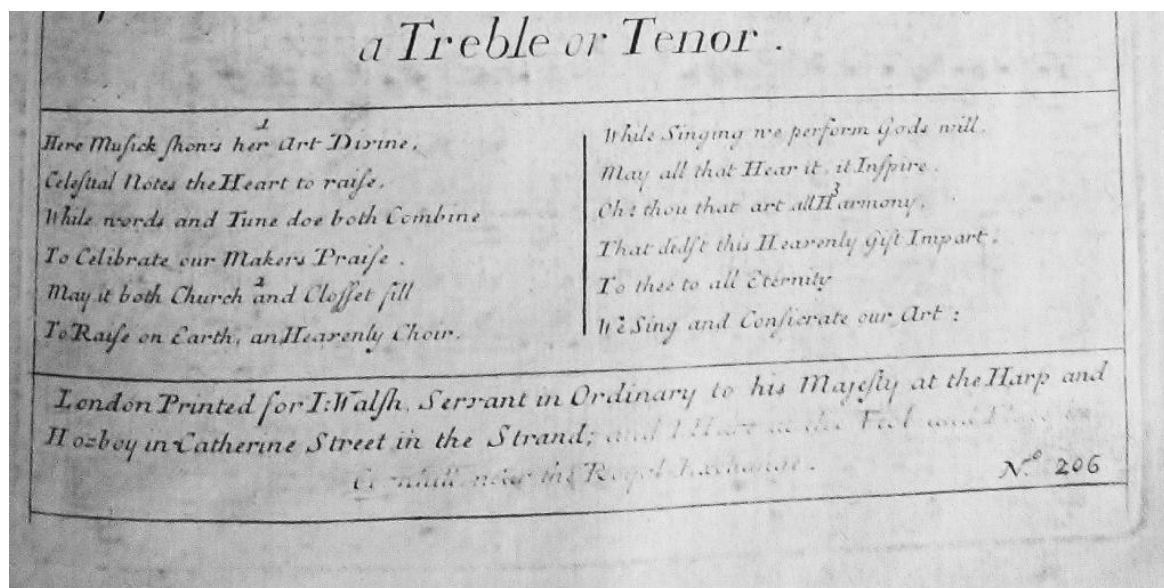 a Treble or Tenor.
1
Here Musick shows her Art Divine,
Celestial Notes the Heart to raise,
While words and Tune doe both Combine
To Celibrate our Makers Praise.
2
May it both Church and Closset fill
To Raise on Earth, an Heavenly Choir.
While Singing we perform Gods will,
May all that Hear it, it Inspire.
3
Oh! thou that art all Harmony,
That didst this Heavenly Gift Impart,
To thee to all Eternity
We Sing and Consicrate our Art:
London Printed for I: Walsh, Servant in Ordinary to his Majesty at the Harp and
Hoboy in Catherine Street in the Strand; and I Hare at the Viol and Flute in
Cornhill near the Royal Exchange.
No. 206